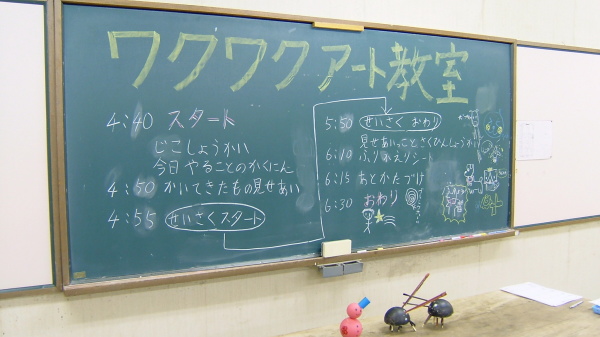 ワクワクアート教室
4:40 スタート
じこしょうかい
今日やることのかくにん
4:50 かいてきたもの見せあい
4:55 せいさくスタート
5:50 せいさく おわり
見せあいっことさくひんしょうかい
6:10 ふりかえりシート
6:15 あとかたづけ
6:30 おわり